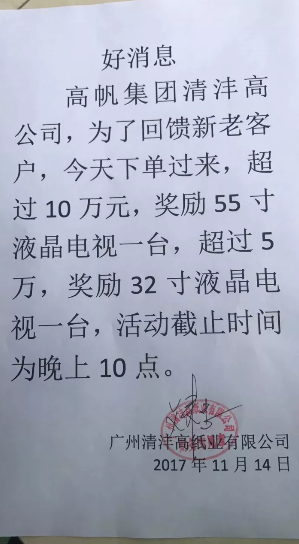 好消息
高帆集团清沣高
公司，为了回馈新老客
户，今天下单过来，超
过 10 万元，奖励 55 寸
液晶电视一台，超过 5
万，奖励 32 寸液晶电
视一台，活动截止时间
为晚上 10 点。
广州清沣高纸业有限公司
2017 年 11 月 14 日